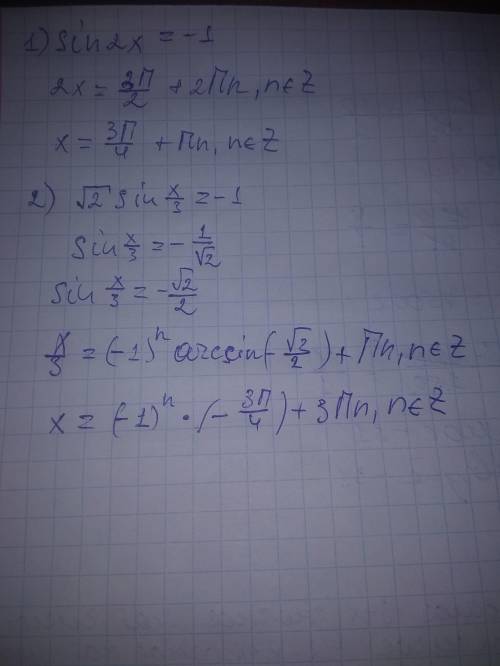 1) sin2x = -1
2x = 3П/2 + 2Пn, n∈Z
x = 3П/4 + Пn, n∈Z
2) √2 sin x/3 = -1
sin x/3 = - 1/√2
sin x/3 = - √2/2
x/3 = (-1)ⁿ arcsin(- √2/2) + Пn, n∈Z
x = (-1)ⁿ · (- 3П/4) + 3Пn, n∈Z